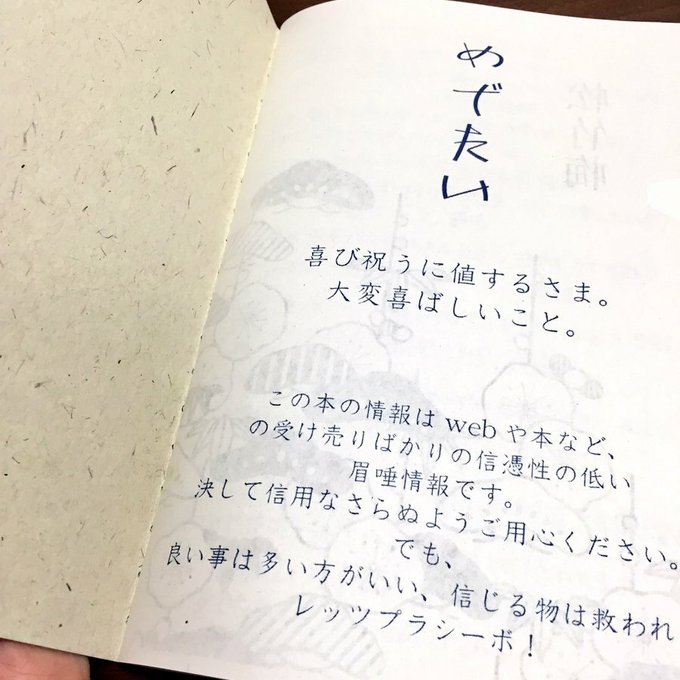 めでたい
喜び祝うに値するさま。
大変喜ばしいこと。
この本の情報はwebや本など、
の受け売りばかりの信憑性の低い
眉唾情報です。
決して信用なさらぬようご用心ください。
でも、
良い事は多い方がいい、信じる物は救われ
レッツプラシーボ！